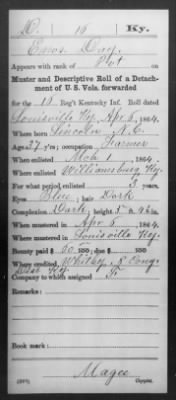 D. 15 Ky.
Enos Day
Appears with rank of Pvt on
Muster and Descriptive Roll of a Detach-
ment of U. S. Vols. forwarded
for the 15 Reg't Kentucky Inf. Roll dated
Louisville Ky, Apr 6, 1864.
Where born Lincoln, N.C.
Age 27 y'rs; occupation Farmer
When enlisted Mch 1, 1864.
Where enlisted Williamsburg Ky.
For what period enlisted 3 years.
Eyes Blue; hair Dark
Complexion Dark; height 5 ft. in.
When mustered in Apr 6, 1864.
Where mustered in Louisville Ky.
Bounty paid $ 60 100; due $ 100
Where credited Whitley, 8 Cong
Dist Ky
Company to which assigned
Remarks:
Book mark:
Magee
Copyist.